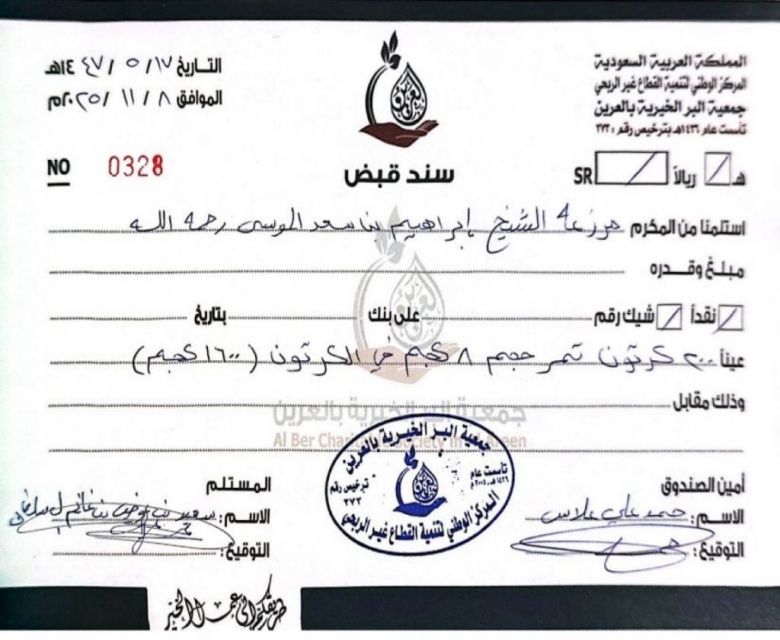 المملكة العربية السعودية
المركز الوطني لتنمية القطاع غير الربحي
جمعية البر الخيرية بالعرين
تأسست عام ١٤٢٦هـ بترخيص رقم : ٢٧٣
التاريخ ١٧/ ٥ / ١٤٤٧هـ
الموافق ٨ / ١١ / ٢٠٢٥م
العرين
سند قبض
NO 0328
هـ ريالاً SR
استلمنا من المكرم مزرعة الشيخ إبراهيم بن سعد الموسى رحمه الله
مبلغ وقدره
نقداً شيك رقم على بنك بتاريخ
عيناً ٢٠٠ كرتون تمر حجم ٨ كجم في الكرتون (١٦٠٠ كجم)
وذلك مقابل
جمعية البر الخيرية بالعرين
Al Ber Charitable Society in Al Areen
أمين الصندوق
الاسم : حمد علي علاس
التوقيع :
المستلم
الاسم : سعيد بن
التوقيع :
جمعية البر الخيرية بالعرين
تأسست عام
١٤٢٦هـ ٢٠٠٥م
ترخيص رقم
٢٧٣
المركز الوطني لتنمية القطاع غير الربحي
طريقكم إلى عمل الخير